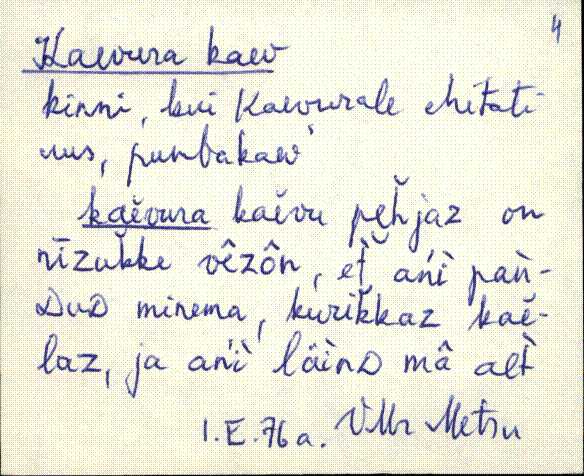 4
Kaevura kaev
kinni, kui Kaevurale ehitati
uus, punbakaev
kaĕvura kaĕvu pĕh̆jaz on
nīzuk̆ke vêzôn, et̆ ańì pàǹ-
DuD minema, kurik̆kaz kaĕ-
laz, ja ańì läìnD mâ alt̀
1.E.76a. VMr Metsu